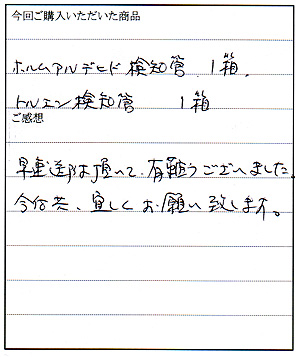 今回ご購入いただいた商品
ホルムアルデヒド検知管 1箱.
トルエン検知管 1箱
ご感想
早速送付頂いて、有難うございました。
今后共、宜しくお願い致します。